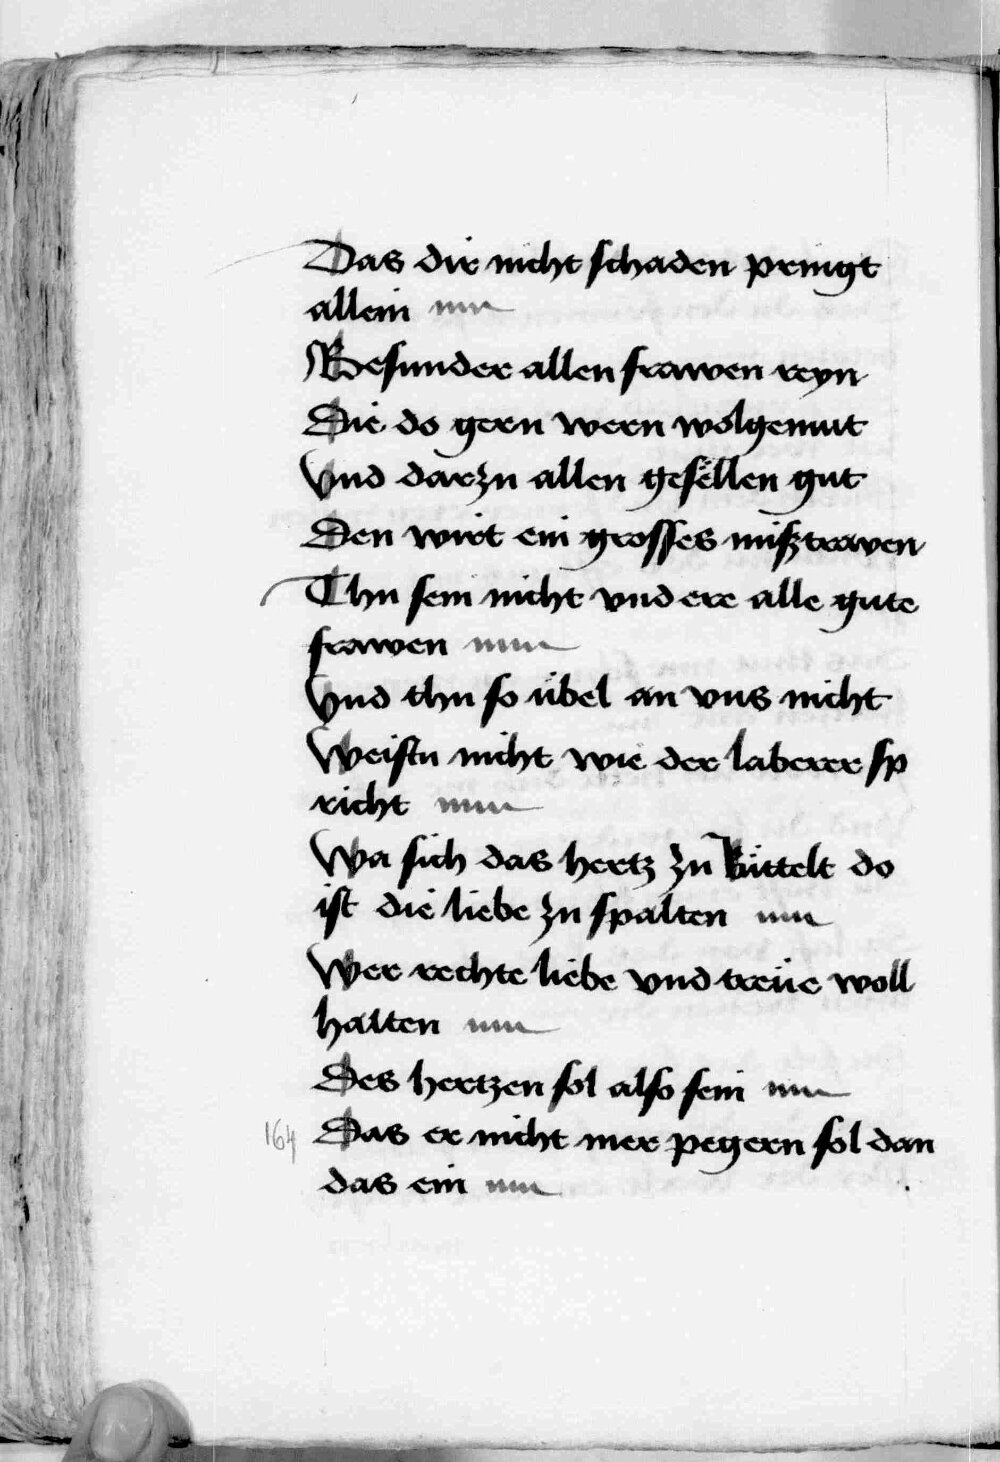 Das dir nicht schaden pringt
allein
Besunder allen frawen reyn
Die do gern wern wolgemut
Vnd darzu allen gesellen gut
Den wirt ein grosses mißtrawen
Thu sein nicht vnd ere alle gute
frawen
Vnd thu so übel an vns nicht
Weistu nicht wie der laberer sp
richt
Wa sich das hertz zu küttelt do
ist die liebe zu spalten
Wer rechte liebe vnd treüe woll
halten
Des hertzen sol also sein
164 Das er nicht mer pegern sol dan
das ein